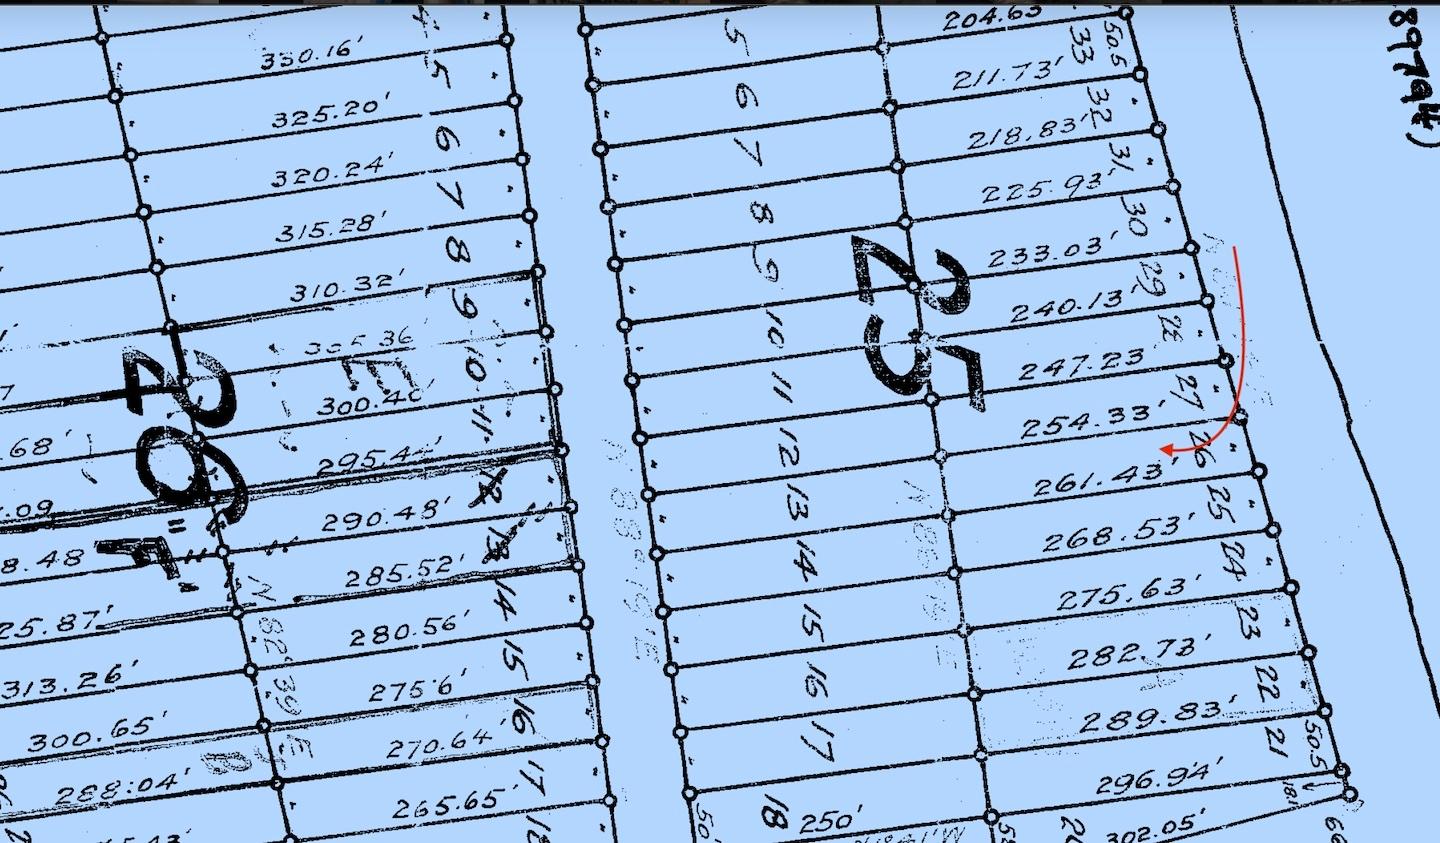 89794)
204.63
50.5
33
5
5
330.16'
211.73'
32
6
325.20'
6
218.83'
31
7
320.24'
7
225.93'
30
8
315.28'
8
233.03'
29
9
310.32'
9
25
240.13'
28
10
10
247.23
27
11
300.40
11
26
254.33'
26
12
.68'
295.4
12
261.43'
25
13
.09
290.48'
13
268.53'
24
14
8.48
"F"
285.52'
14
275.63'
23
15
25.87'
280.56'
15
282.73'
22
16
313.26'
275.6'
16
289.83'
21
50.5
17
300.65'
270.64'
17
296.94'
288.04'
265.65'
18
250'
50'
302.05'
18
20
66
N 82°30 E